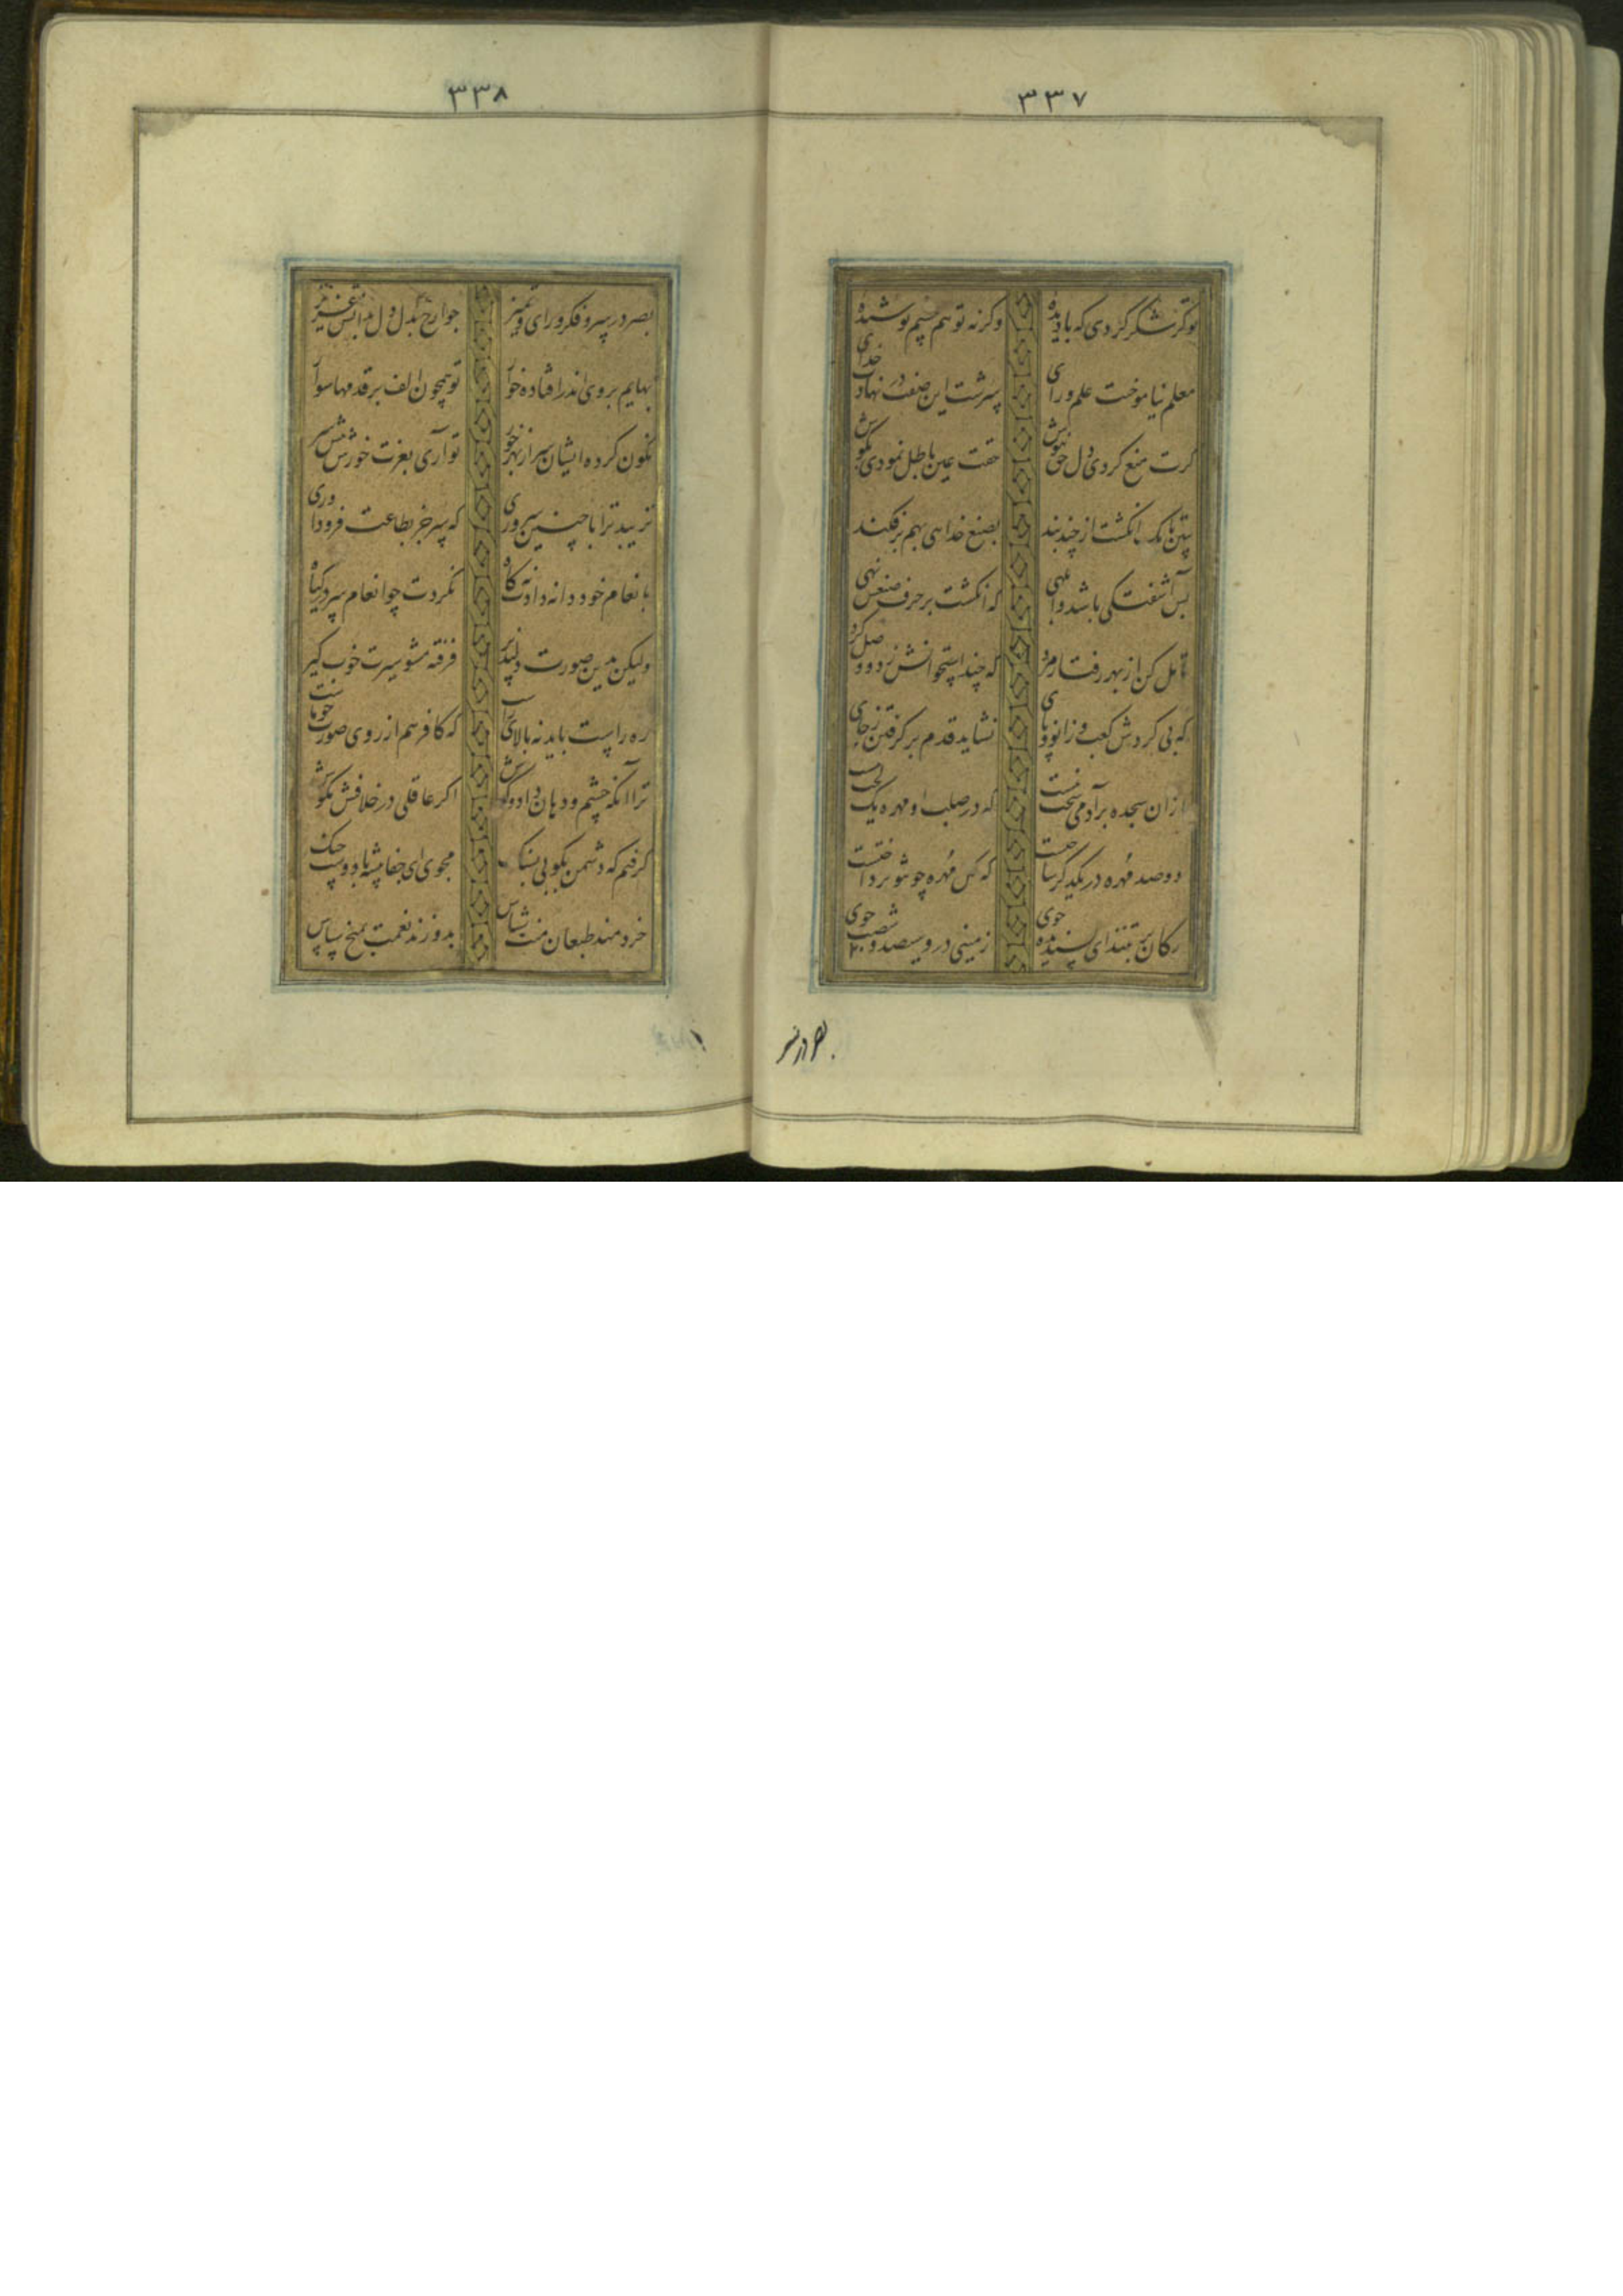 ۳۳۷
تو گر شکر کردی که با دیده
وگرنه تو هم چشم پوشیده
معلم نیاموخت علم و رای
سرشت این صفت در نهادت خدای
گرت منع کردی دل حق نیوش
حقت عین باطل نمودی بگوش
ببین تا یک انگشت از چند بند
بصنع خدای بهم برفکند
بس آشفتگی باشد و ابلهی
که انگشت بر حرف صنعش نهی
تامل کن از بهر رفتار مرد
که چند استخوانش زد و وصل کرد
که بی کردش کعب و زانو و پای
نشاید قدم بر گرفتن ز جای
از آن سجده بر آدمی سخت نیست
که در صلب او مهره یک لخت نیست
دو صد مهره در یکدگر ساختست
که گل مهره چو تو پرداختست
رکان بر تنند ای پسندیده خوی
زمینی درو سیصد و شصت جوی
بصر در سر
۳۳۸
بصر در سر و فکر و رای و تمیز
جوارح بدل دل بدانش عزیز
بهایم بروی اندر افتاده خوار
تو همچون الف بر قدمها سوار
نگون کرده ایشان سر از بهر خور
تو آری بعزت خورش پیش سر
نزیبد ترا با چنین سروری
که سر جز بطاعت فرود آوری
بانعام خود دانه دادت نه کاه
نکردت چو انعام سر در گیاه
ولیکن بدین صورت دلپذیر
فرفته مشو سیرت خوب گیر
ره راست باید نه بالای راست
که کافر هم از روی صورت چو ماست
ترا آنکه چشم و دهان داد و گوش
اگر عاقلی در خلافش مکوش
گرفتم که دشمن بکوبی بسنگ
مجوی ای جفا پیشه با دوست جنگ
خردمند طبعان منت شناس
بدوزند نعمت بمیخ سپاس